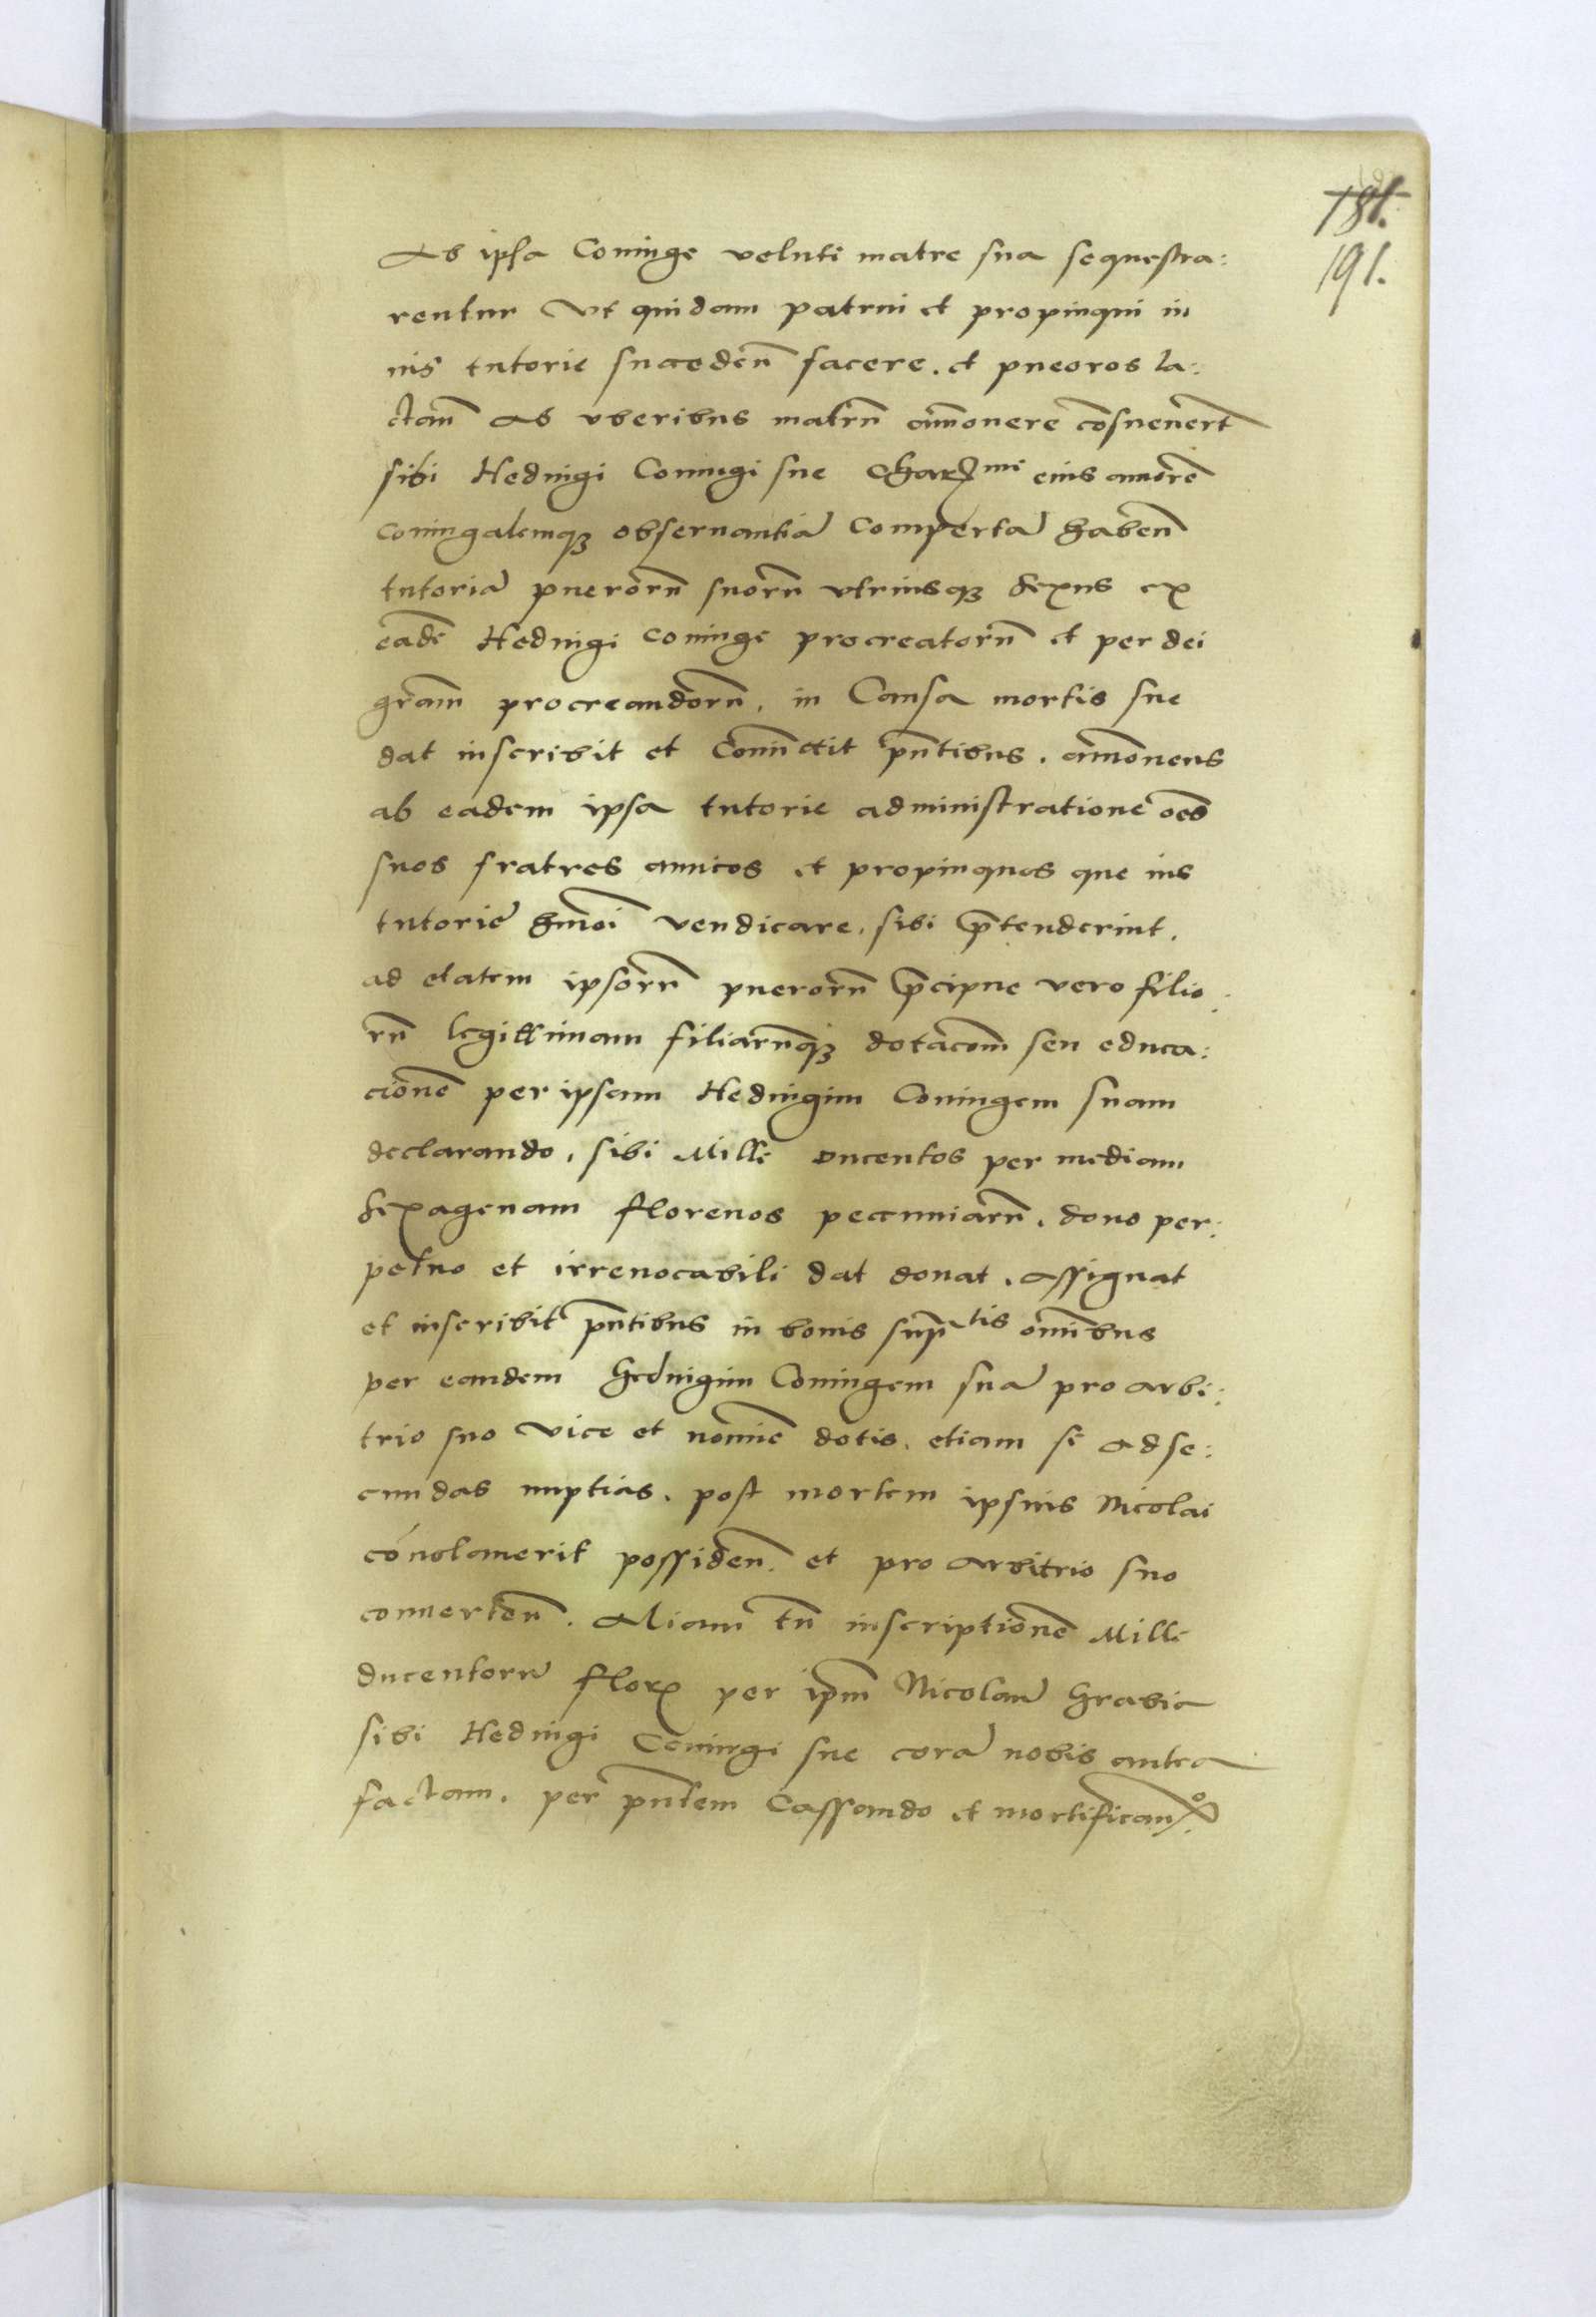 181.
191.
Ab ipsa Coniuge veluti matre sua sequestra:
rentur Vt quidam patrui et propinqui in
ius tutorie succeden̄ facere. et pueoros la:
ctan̄ Ab vberibus matrū am̄ouere cōsueuerūt
sibi Heduigi Coniugi sue Charꝫmi eius amorē
coniugalemqꝫ obseruantiā Compertā haben̄
tutoriā puerorū suorū vtriusqꝫ sexus ex
eadē Heduigi coniuge procreatorū et per dei
gr̄am procreandorū. in Causa mortis sue
dat inscribit et Com̄ittit pn̄tibus. am̄ouens
ab eadem ipsa tutorie administratione oēs
suos fratres amicos et propinquos que ius
tutorie hm̄oi vendicare. sibi p̄tenderint.
ad etatem ipsorū puerorū p̄cipue vero filio
rū legittimam filiarūqꝫ dotac̄om̄ seu educa:
cionē per ipsam Heduigim Coniugem suam
declarando. sibi Mille ducentos per mediam
sexagenam florenos pecuniarū. dono per:
petuo et irreuocabili dat donat. Assignat
et inscribit pn̄tibus in bonis sup̄tis om̄ibus
per eandem Heduigim Coniugem suā pro arbi:
trio suo vice et nomīe dotis. etiam si ad se:
cundas nuptias. post mortem ipsius Nicolai
conolauerit possiden̄. et pro arbitrio suo
conuerten̄. Aliam tn̄ inscriptionē Mille
ducentorū florꝫ per ipm̄ Nicolaū Grabia
sibi Heduigi Coniugi sue corā nobis antea
factam. per pn̄tem Cassando et mortificanᵒ.